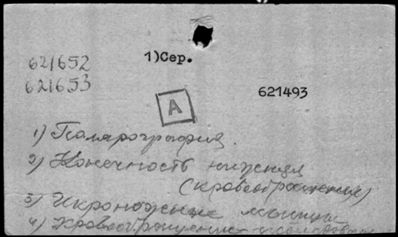 1)Сер.
621652
621653
621493
А
1) Полярография.
2) Конечность нижняя
(кровообращение)
3) Икроножные мышцы
4) Кровообращение